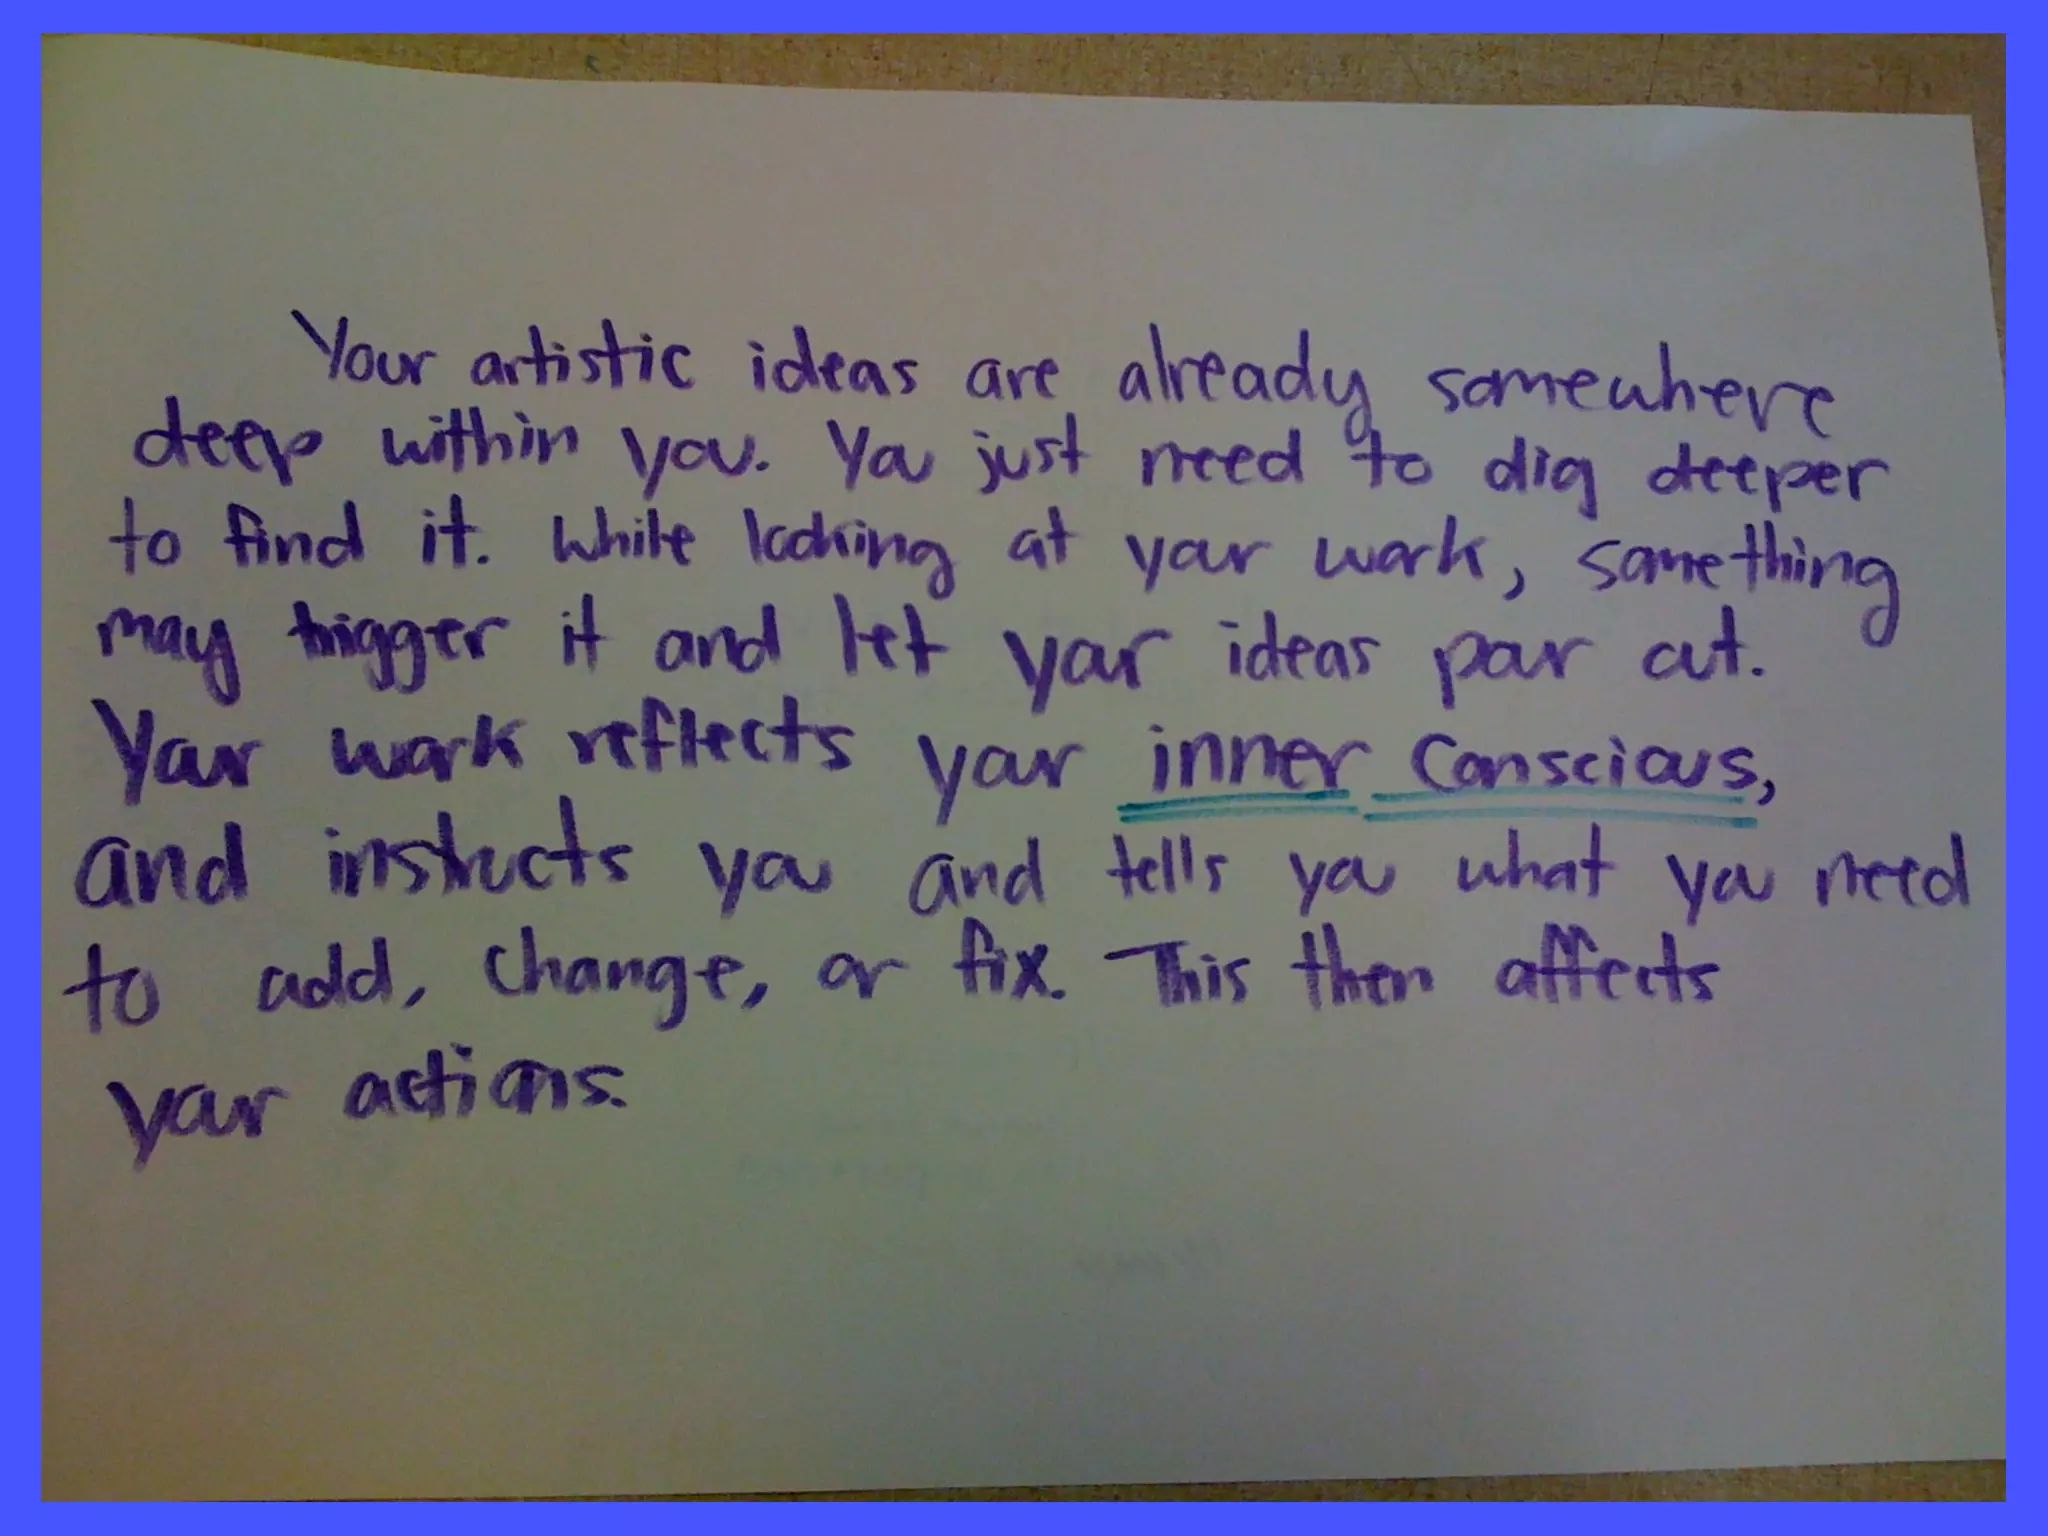 Your artistic ideas are already somewhere
deep within you. You just need to dig deeper
to find it. While looking at your work, something
may trigger it and let your ideas pour out.
Your work reflects your inner conscious,
and instructs you and tells you what you need
to add, change, or fix. This then affects
your actions.